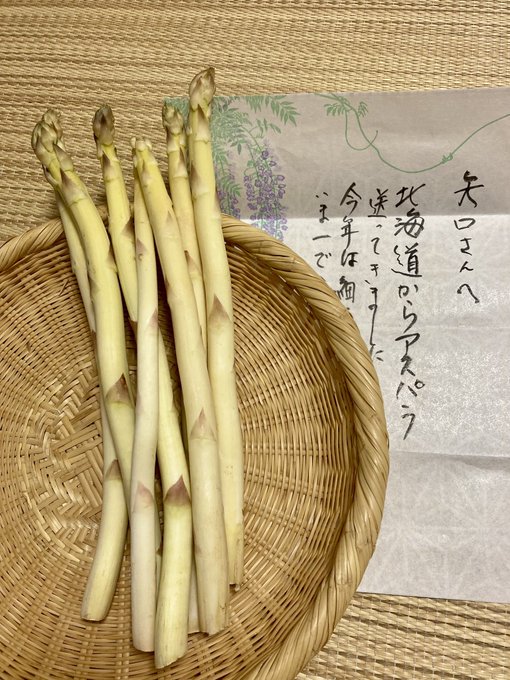 矢口さんへ
北海道からアスパラ
送ってきました
今年は細
いま一で